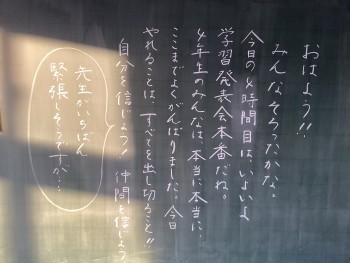 おはよう!!
みんなそろったかな。
今日の4時間目は、いよいよ
学習発表会本番だね。
4年生のみんなは、本当に本当に、
ここまでよくがんばりました。今日
やれることは、すべてを出し切ること!!
自分を信じよう! 仲間を信じよう
先生がいちばん
緊張しそうですが…